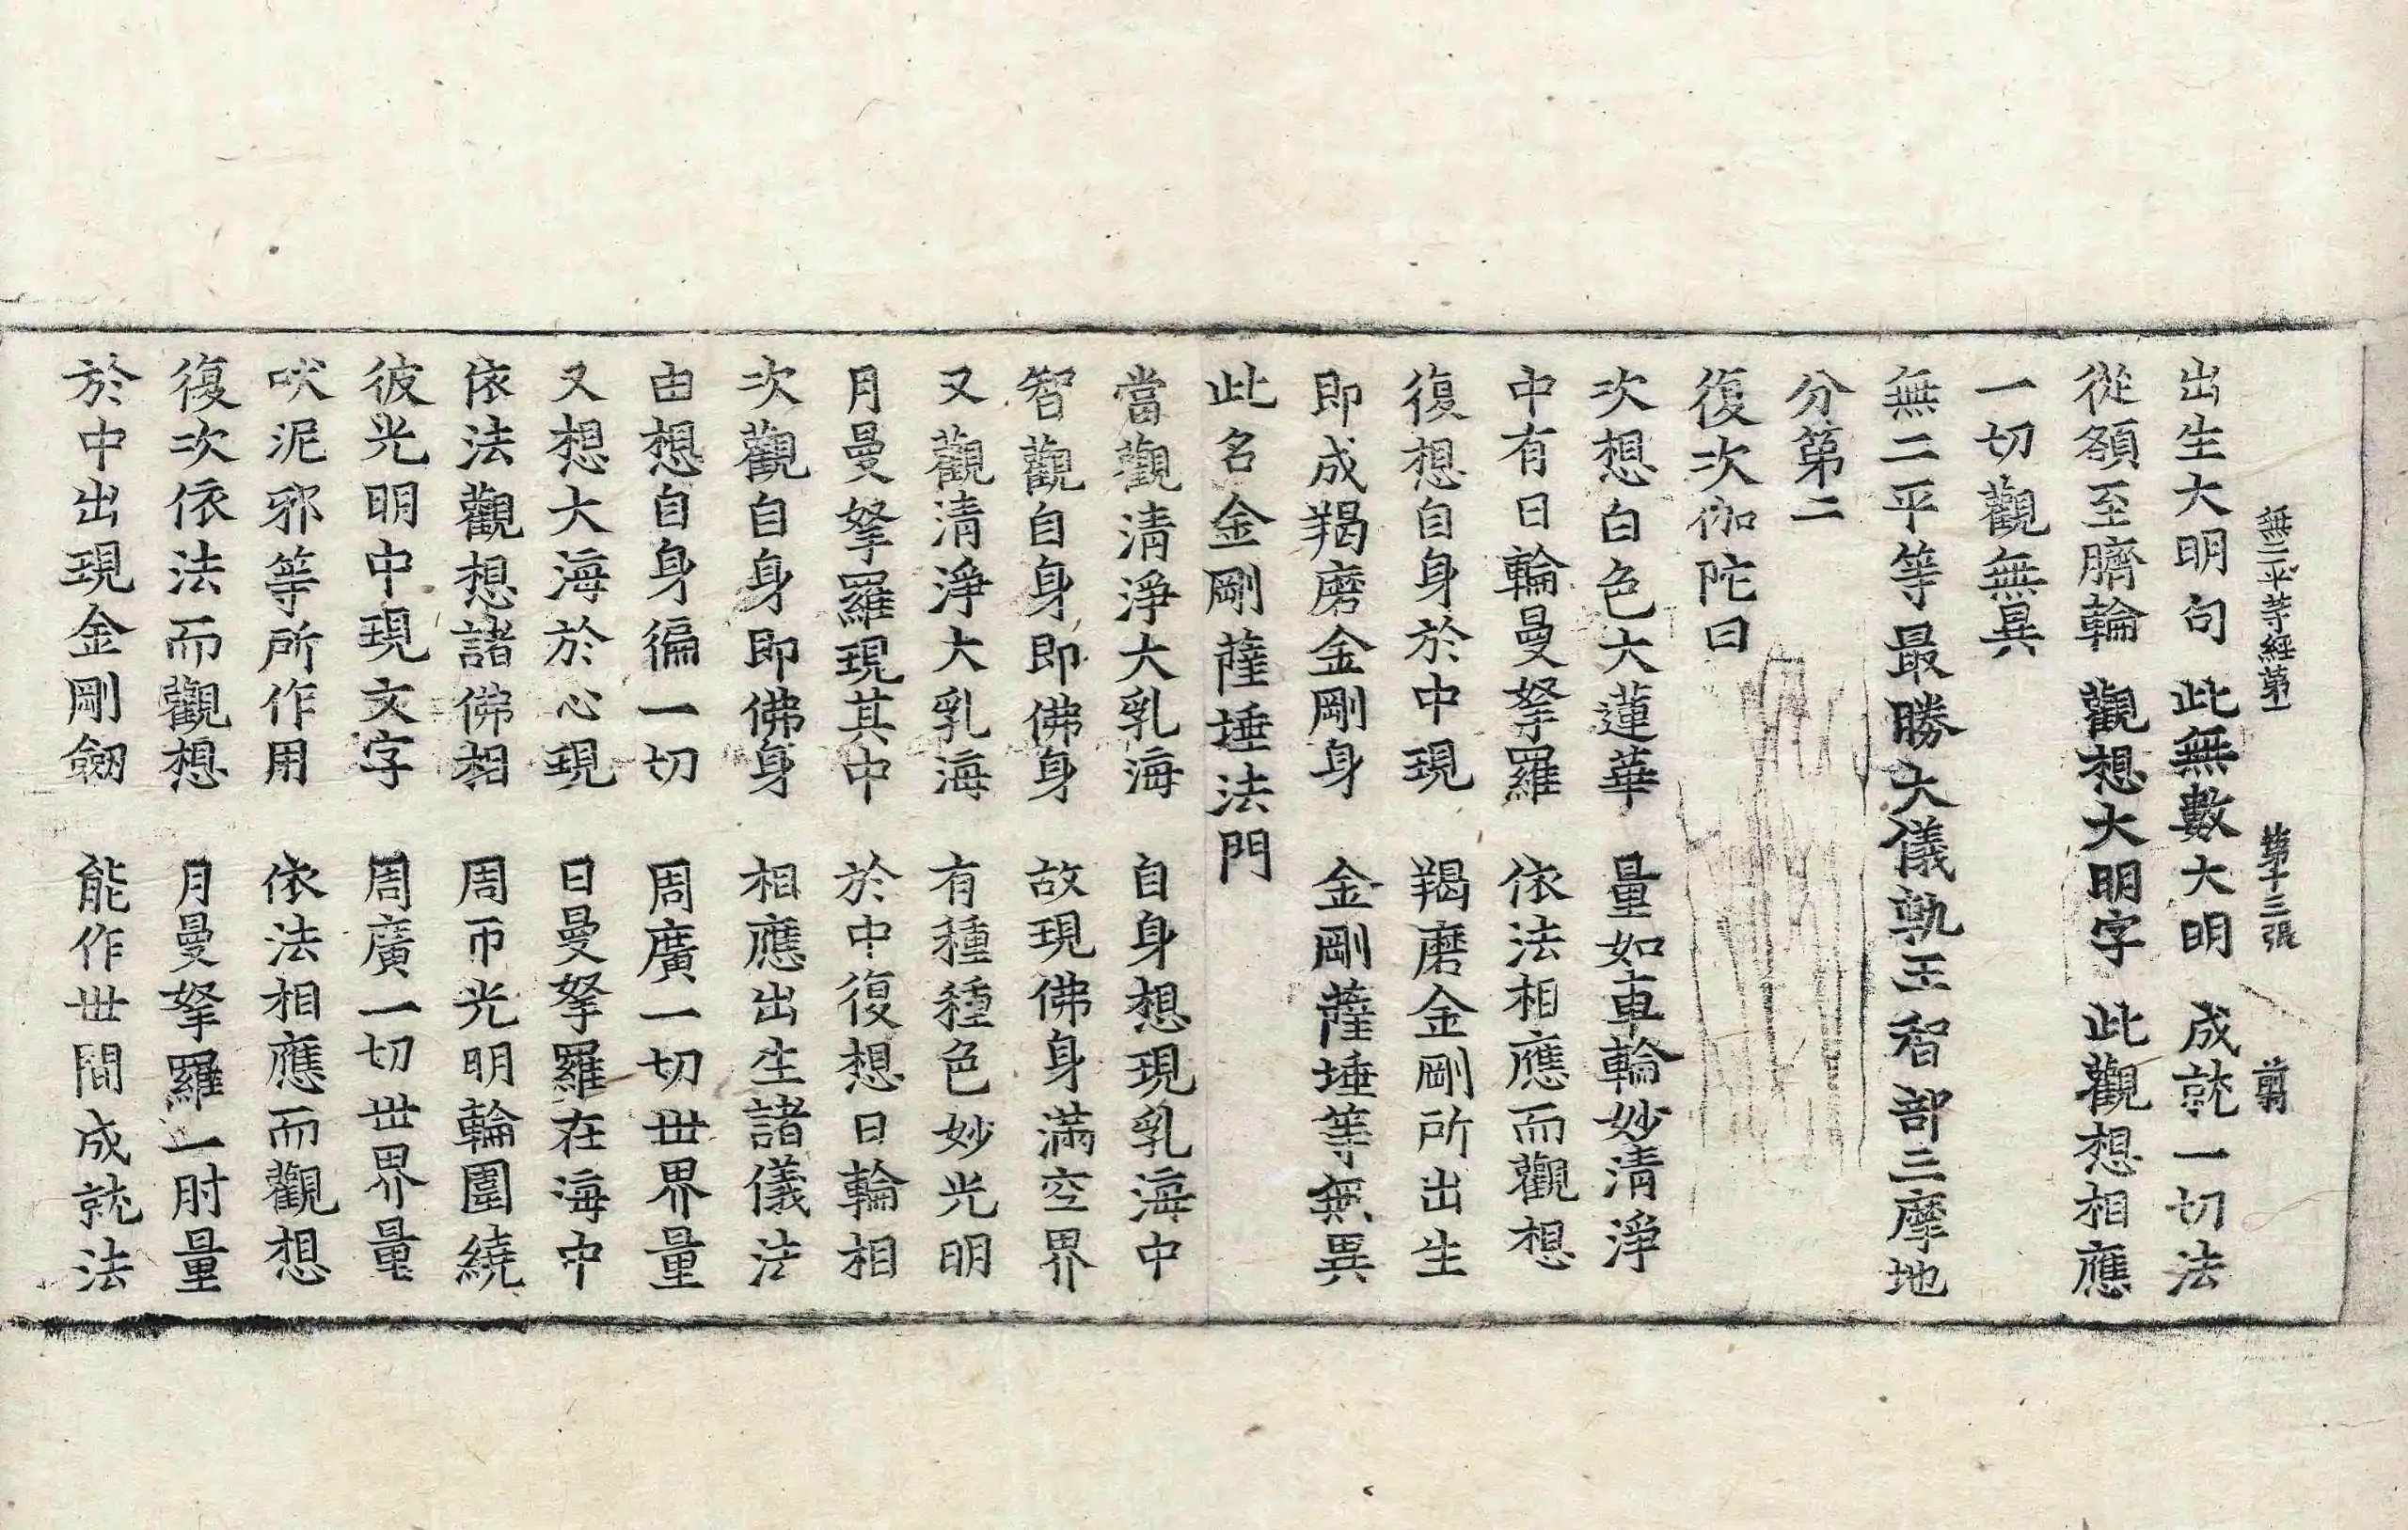 無二平等經第一 第十三張 前
出生大明句 此無數大明 成就一切法
從額至臍輪 觀想大明字 此觀想相應
一切觀無異
無二平等最勝大儀軌王智部三摩地
分第二
復次伽陀曰
次想白色大蓮華 量如車輪妙清淨
中有日輪曼拏羅 依法相應而觀想
復想自身於中現 羯磨金剛所出生
即成羯磨金剛身 金剛薩埵等無異
此名金剛薩埵法門
當觀清淨大乳海 自身想現乳海中
智觀自身即佛身 故現佛身滿空界
又觀清淨大乳海 有種種色妙光明
月曼拏羅現其中 於中復想日輪相
次觀自身即佛身 相應出生諸儀法
由想自身徧一切 周廣一切世界量
又想大海於心現 日曼拏羅在海中
依法觀想諸佛相 周帀光明輪圍繞
彼光明中現文字 周廣一切世界量
吠泥邪等所作用 依法相應而觀想
復次依法而觀想 月曼拏羅一肘量
於中出現金剛劒 能作世間成就法